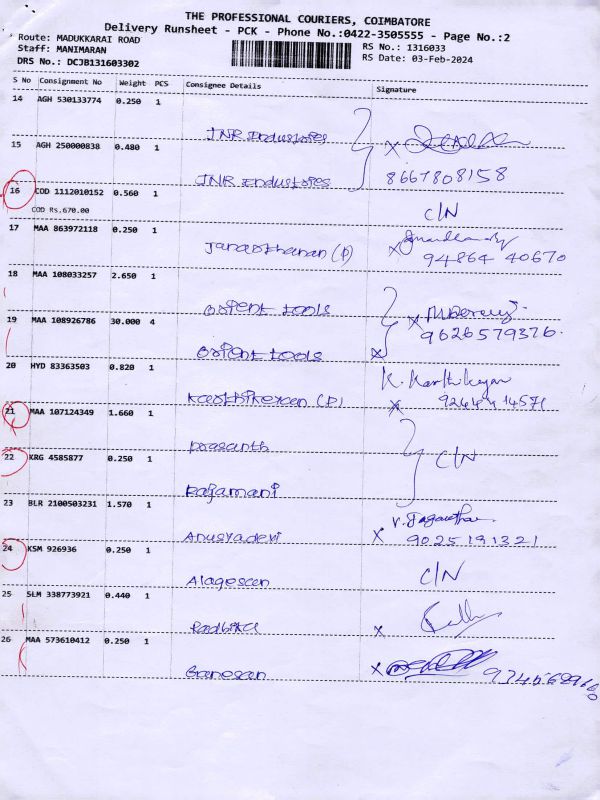 THE PROFESSIONAL COURIERS, COIMBATORE
Delivery Runsheet - PCK - Phone No.:0422-3505555 - Page No.:2
Route: MADUKKARAI ROAD
Staff: MANIMARAN
DRS No.: DCJB131603302
RS No.: 1316033
RS Date: 03-Feb-2024
S No Consignment No Weight PCS Consignee Details Signature
14 AGH 530133774 0.250 1
JNR Industries
15 AGH 250000838 0.480 1
JNR Industries X 8667808158
16 COD 1112010152 0.560 1
COD Rs.670.00 C/N
17 MAA 863972118 0.250 1
Janarthanan (P) X 94864 40670
18 MAA 108033257 2.650 1
orient tools X
19 MAA 108926786 30.000 4 9626579376.
orient tools X
20 HYD 83363503 0.820 1 K. Karthikeyan
Karthikeyan (P) X
21 MAA 107124349 1.660 1
Prasanth
22 KRG 4585877 0.250 1 C/N
Rajamani
23 BLR 2100503231 1.570 1
Anusyadevi X 9025191321
24 KSM 926936 0.250 1
Alagesan C/N
25 SLM 338773921 0.440 1
Radhika X
26 MAA 573610412 0.250 1
Ganesan X